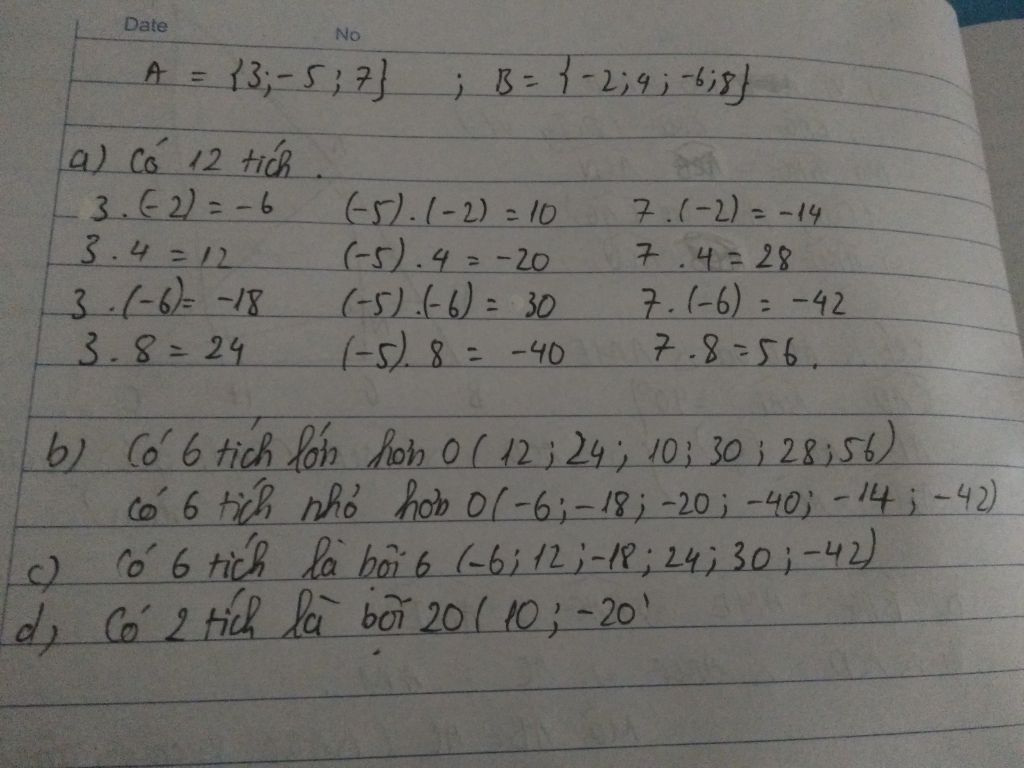 Date No
A = {3; -5; 7} ; B = {-2; 4; -6; 8}
a) Có 12 tích.
3 . (-2) = -6 (-5) . (-2) = 10 7 . (-2) = -14
3 . 4 = 12 (-5) . 4 = -20 7 . 4 = 28
3 . (-6) = -18 (-5) . (-6) = 30 7 . (-6) = -42
3 . 8 = 24 (-5) . 8 = -40 7 . 8 = 56.
b) Có 6 tích lớn hơn 0 ( 12 ; 24 ; 10 ; 30 ; 28 ; 56)
có 6 tích nhỏ hơn 0 (-6 ; -18 ; -20 ; -40 ; -14 ; -42)
c) Có 6 tích là bội 6 (-6 ; 12 ; -18 ; 24 ; 30 ; -42)
d, Có 2 tích là bội 20 ( 10 ; -20)